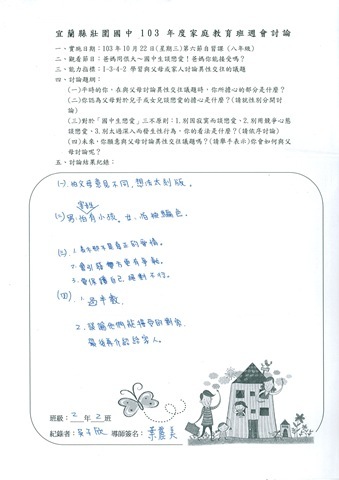 宜蘭縣壯圍國中 103 年度家庭教育班週會討論
一、實施日期：103年10月22日(星期三)第六節自習課（八年級）
二、觀看節目：爸媽同很大~國中生談戀愛！爸媽你能接受嗎？
三、能力指標：1-3-4-2 學習與父母或家人討論異性交往的議題
四、討論題綱：
(一)平時的你，在與父母討論異性交往議題時，你所擔心的部分是什麼？
(二)你認為父母對於兒子或女兒談戀愛的擔心是什麼？(請就性別分開討
論)
(三)對於「國中生戀愛」三不原則：1.別因寂寞而談戀愛、2.別用競爭心態
談戀愛、3.別太過深入而發生性行為，你的看法是什麼？(請依序討論)
(四)未來，你願意與父母討論異性交往議題嗎？(請舉手表示)你會如何與父
母討論呢？
五、討論結果紀錄：
(一)、怕父母意見不同，想法太刻版。
(二)男:怕有小孩。女:怕被騙色。
(三)、1.
2.
3.要保護自己，絕對不行。
(四)、1.過半數
2.
最後再介紹給家人。
班級：2年2班
紀錄者： 導師簽名：